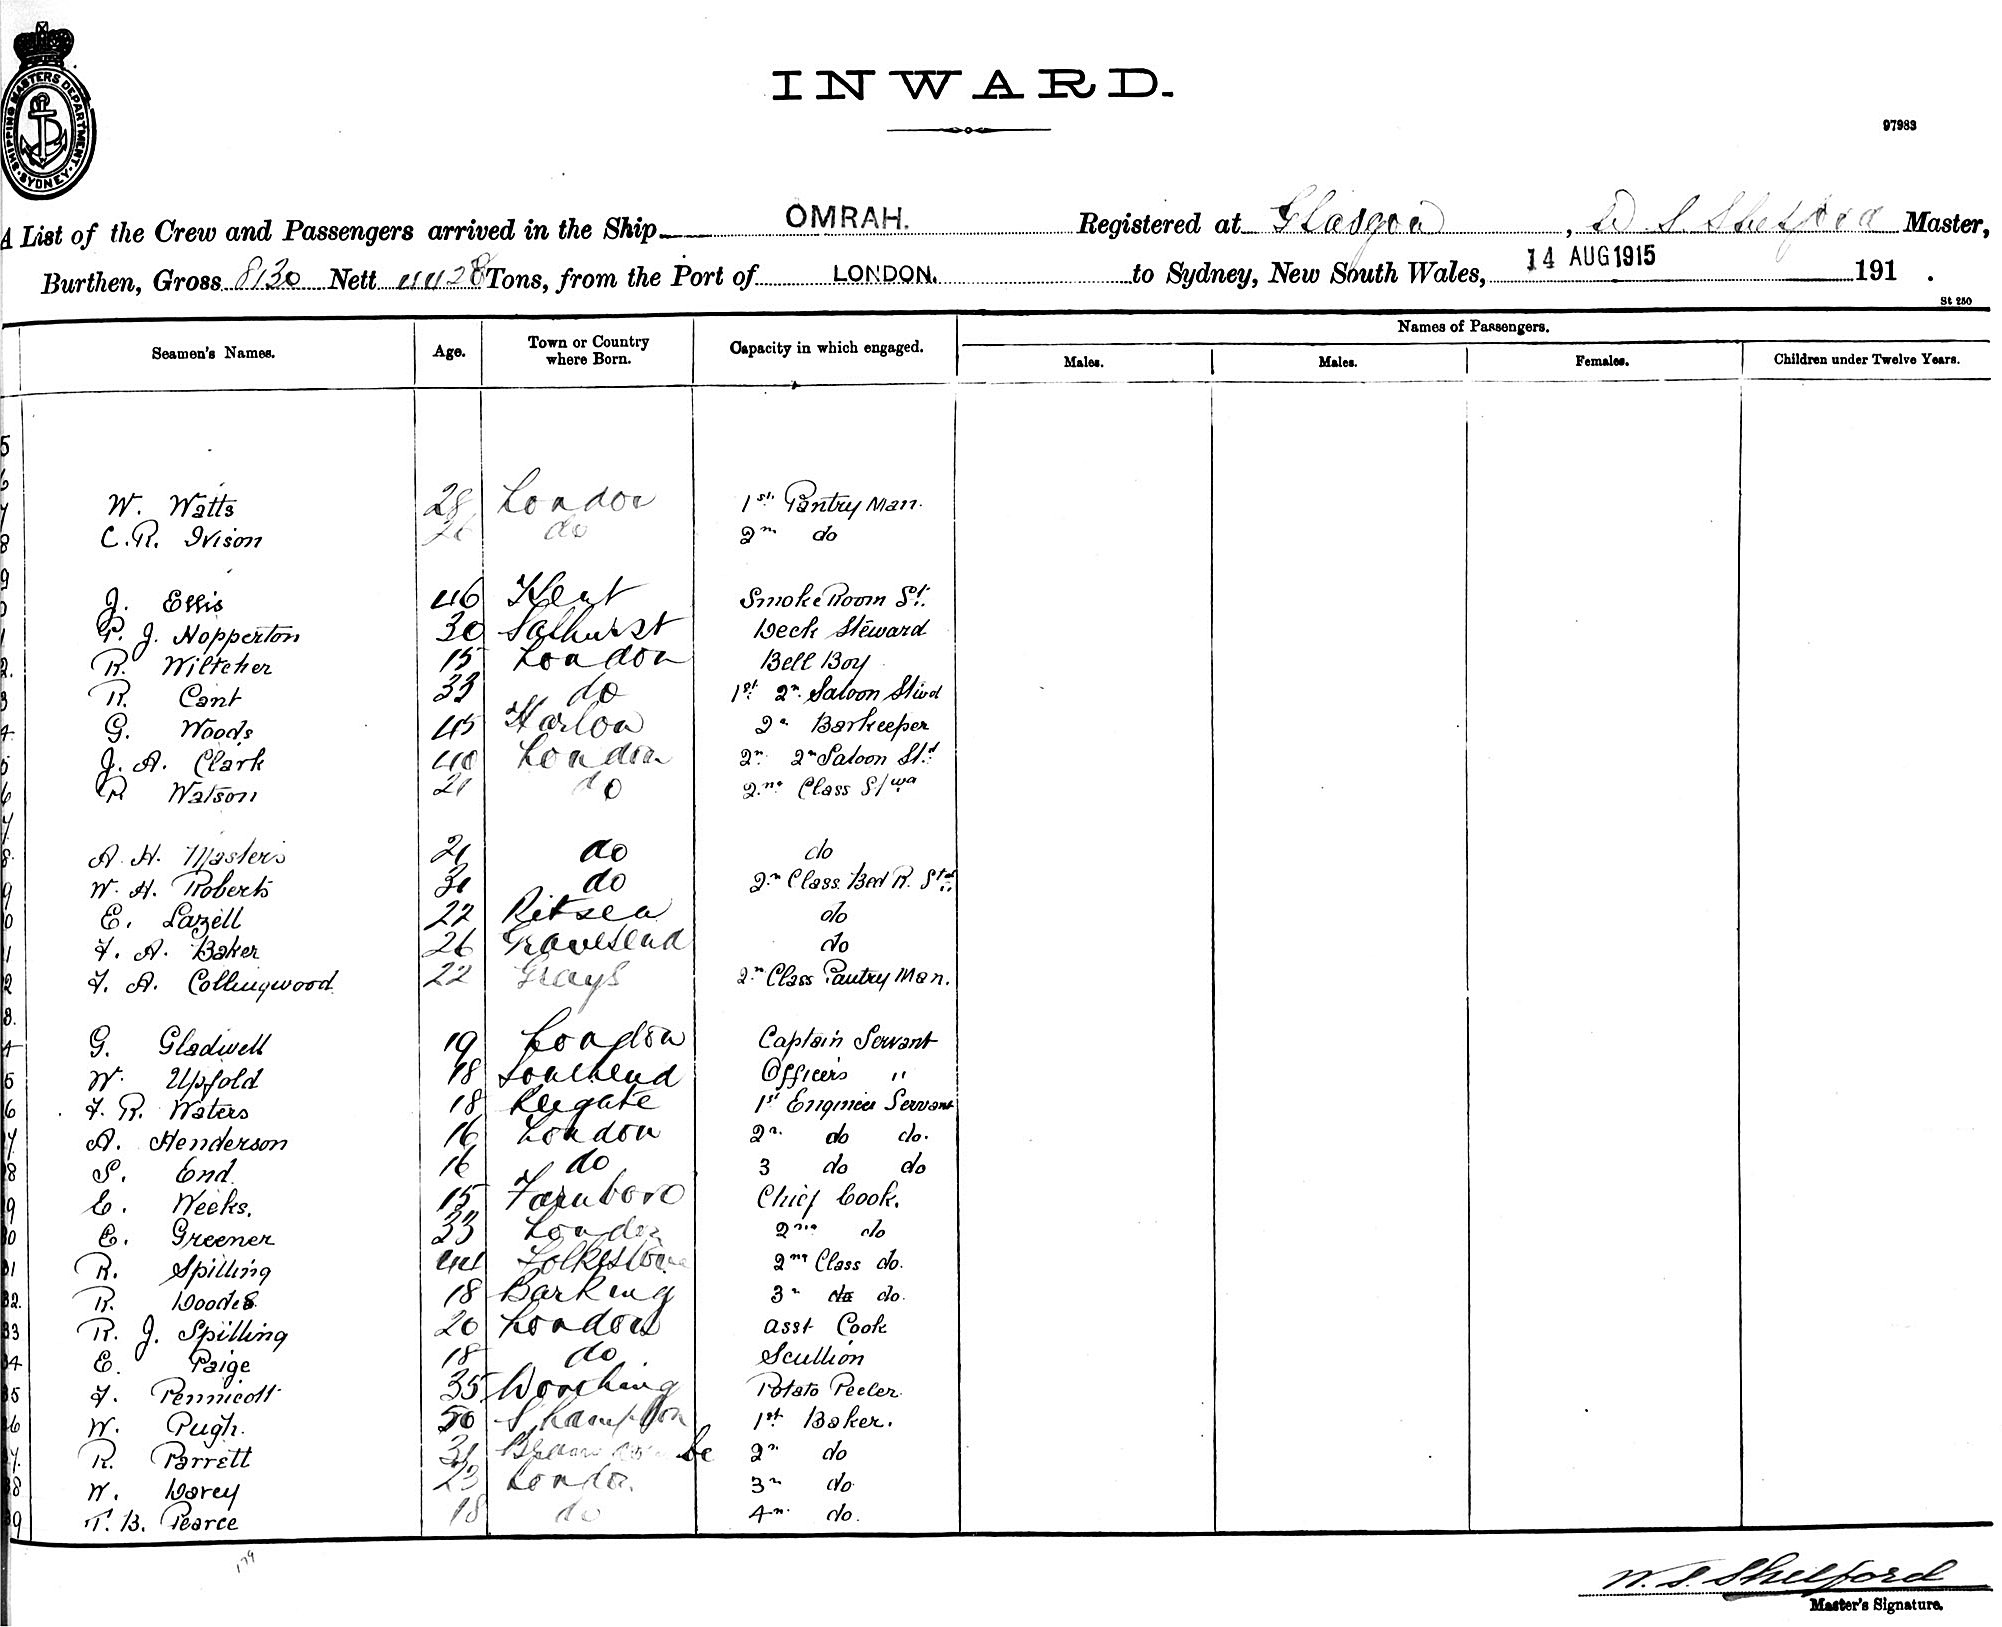 SHIPPING MASTERS DEPARTMENT. SYDNEY.
INWARD.
97983
A List of the Crew and Passengers arrived in the Ship OMRAH. Registered at Glasgow, W S. Shelford Master,
Burthen, Gross 8130 Nett 4428 Tons, from the Port of LONDON. to Sydney, New South Wales, 14 AUG 1915 191 .
St 250
Seamen's Names. Age. Town or Country where Born. Capacity in which engaged. Names of Passengers.
Males. Males. Females. Children under Twelve Years.
5
6
7 W. Watts 28 London 1st Pantry Man.
8 C. R. Ivison 26 do 2n do
9
0 J. Ellis 46 Kent Smoke Room St.
1 P. J. Hopperton 30 Salhurst Deck Steward
2. R. Wiltcher 15 London Bell Boy
3 R. Cant 33 do 1st 2n Saloon Stwd
4 G. Woods 45 Harlow 2n Barkeeper
5 J. A. Clark 40 London 2n 2n Saloon Std
6 R Watson 21 do 2nd Class Stwd
7
8. A. H. Masters 21 do do
9 W. H. Roberts 31 do 2n Class Bed R. Std
0 E. Lazell 22 Pitsea do
1 F. A. Baker 26 Gravesend do
2 F. A. Collingwood 22 Grays 2n Class Pantry Man.
3.
4 G. Gladwell 19 London Captain Servant
5 W. Upfold 18 Southend Officers "
6 F. R. Waters 18 Reigate 1st Engineer Servant
7 A. Henderson 16 London 2n do do.
8 S. End. 16 do 3 do do
9 E. Weeks. 15 Farnboro Chief Cook.
0 E. Greener 33 London 2nd do
31 R. Spilling 44 Folkestone 2nd Class do.
32. R. Woodes 18 Barking 3n do do.
33 R. J. Spilling 20 London Asst Cook
34 E. Paige 18 do Scullion
35 F. Pennicott 35 Worthing Potato Peeler
36 W. Pugh. 50 S'hampton 1st Baker.
37. R. Parrett 31 2n do
38 W. Darcy 23 London. 3n do
39 T. B. Pearce 18 do 4n do.
179
W. S. Shelford
Master's Signature.